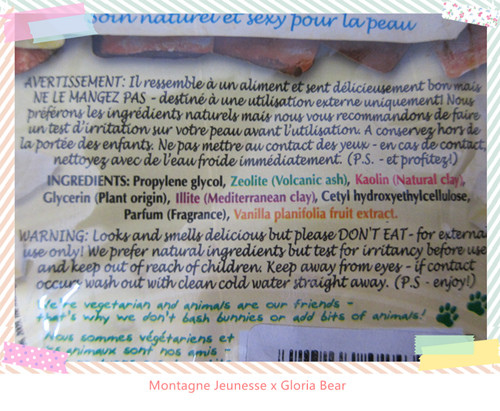 soin naturel et sexy pour la peau
AVERTISSEMENT: Il ressemble à un aliment et sent délicieusement bon mais
NE LE MANGEZ PAS - destiné à une utilisation externe uniquement! Nous
préférons les ingrédients naturels mais nous vous recommandons de faire
un test d'irritation sur votre peau avant l'utilisation. A conservez hors de
la portée des enfants. Ne pas mettre au contact des yeux - en cas de contact,
nettoyez avec de l'eau froide immédiatement. (P.S. - et profitez!)
INGREDIENTS: Propylene glycol, Zeolite (Volcanic ash), Kaolin (Natural clay),
Glycerin (Plant origin), Illite (Mediterranean clay), Cetyl hydroxyethylcellulose,
Parfum (Fragrance), Vanilla planifolia fruit extract.
WARNING: Looks and smells delicious but please DON'T EAT - for external
use only! We prefer natural ingredients but test for irritancy before use
and keep out of reach of children. Keep away from eyes - if contact
occurs wash out with clean cold water straight away. (P.S - enjoy!)
We're vegetarian and animals are our friends -
that's why we don't bash bunnies or add bits of animals!
Nous sommes végétariens et
les animaux sont nos amis -
Montagne Jeunesse x Gloria Bear